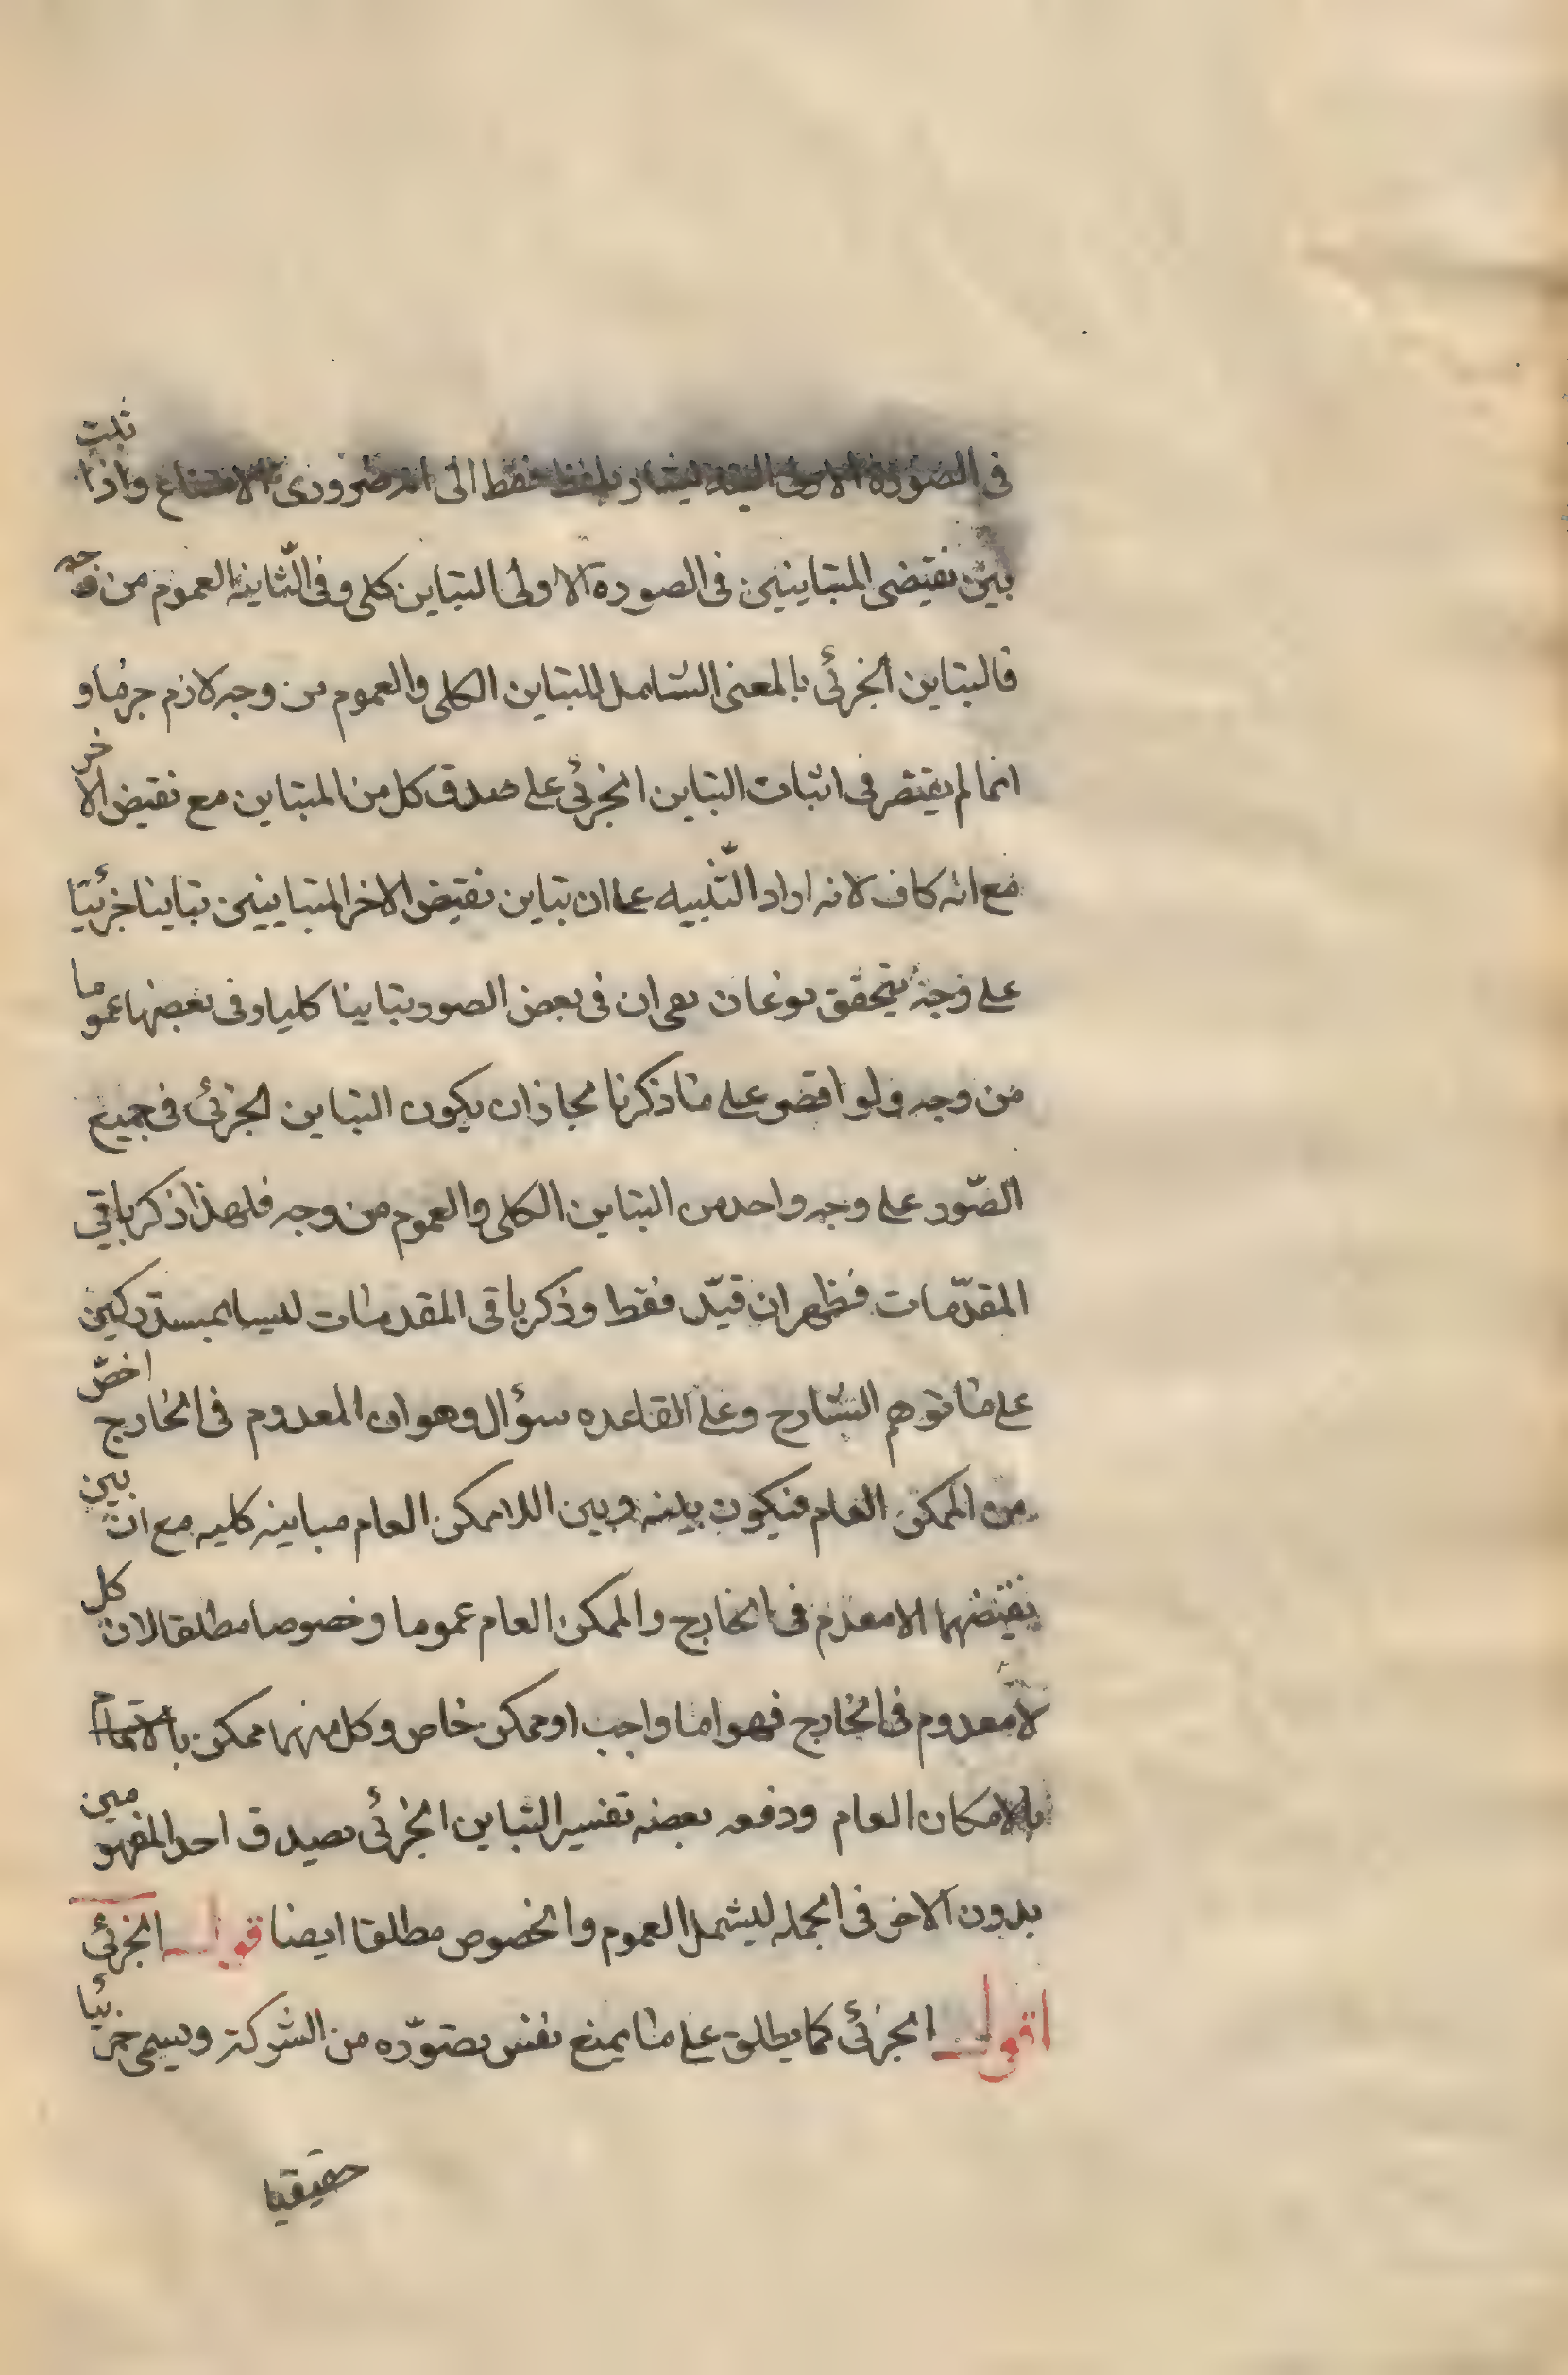 فى الصورة الاولى اليه ليشار بلفظ فقط الى انه ضرورى الامتناع واذا ثبت
بين نقيضى المتباينين فى الصورة الاولى التباين كلى وفى الثانية العموم من وجه
فالتباين الجزئى بالمعنى الشامل للتباين الكلى والعموم من وجه لازم جزما و
انما لم يقتصر فى اثبات التباين الجزئى على صدق كل من المتباين مع نقيض الاخر
مع انه كاف لانه اراد التنبيه على ان تباين نقيض الاخر المتباينين تباينا جزئيا
على وجه يتحقق نوعان اى ان فى بعض الصور تباينا كليا وفى بعضها عموما
من وجه ولو اقتصر على ما ذكرنا لجاز ان يكون التباين الجزئى فى جميع
الصّور على وجه واحد من التباين الكلى والعموم من وجه فلهذا ذكر باقى
المقدّمات فظهر ان قيّد فقط وذكر باقى المقدمات ليسا بمستدركين
على ما توهم الشارح وعلى القاعده سؤال وهو ان المعدوم فى الخارج اخصّ
من الممكن العام فيكون بينه وبين اللاممكن العام مباينه كليه مع ان بين
نقيضهما الامعدم فى الخارج والممكن العام عموما وخصوصا مطلقا لان كل
لامعدوم فى الخارج فهو اما واجب او ممكن خاص وكل منهما ممكن
بالامكان العام ودفعه بعضه تفسير التباين الجزئى بصدق احد المفهومين
بدون الاخر فى الجمله ليشمل العموم والخصوص مطلقا ايضا قول الجزئى
اقول الجزئى كما يطلق على ما يمنع نفس تصوّره من الشركة ويسمى جزئيا
حقيقيا